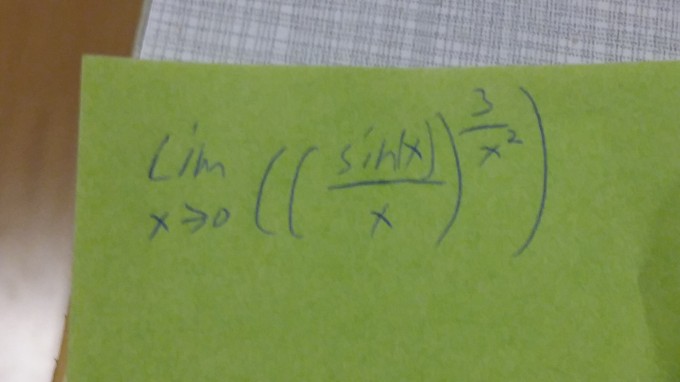 lim x→0 ((sin(x)/x)^(3/x²))